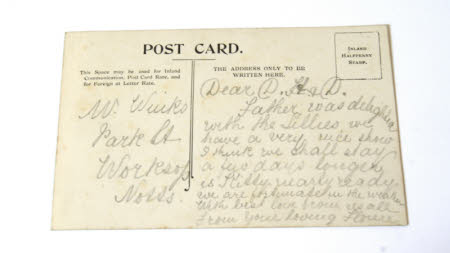 POST CARD.
This Space may be used for Inland
Communication. Post Card Rate, and
for Foreign at Letter Rate.
THE ADDRESS ONLY TO BE
WRITTEN HERE.
INLAND
HALFPENNY
STAMP.
Mr Winks
Park St
Worksop
Notts.
Dear D.
Father was delighted
with the Lillies we
have a very nice show
I think we shall stay
a few days longer
is Kitty nearly ready
we are fortunate in the weather
With best love from us all
From Your loving